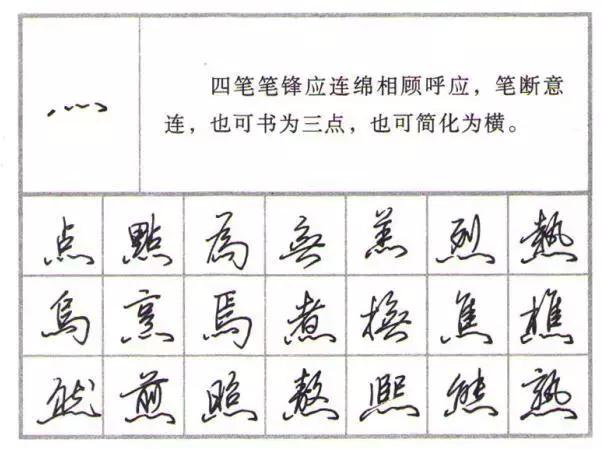 灬
四笔笔锋应连绵相顾呼应，笔断意
连，也可书为三点，也可简化为横。
点 點 為 無 羔 烈 熱
烏 烹 焉 煮 焦 樵
然 煎 照 熬 熙 熊 熟